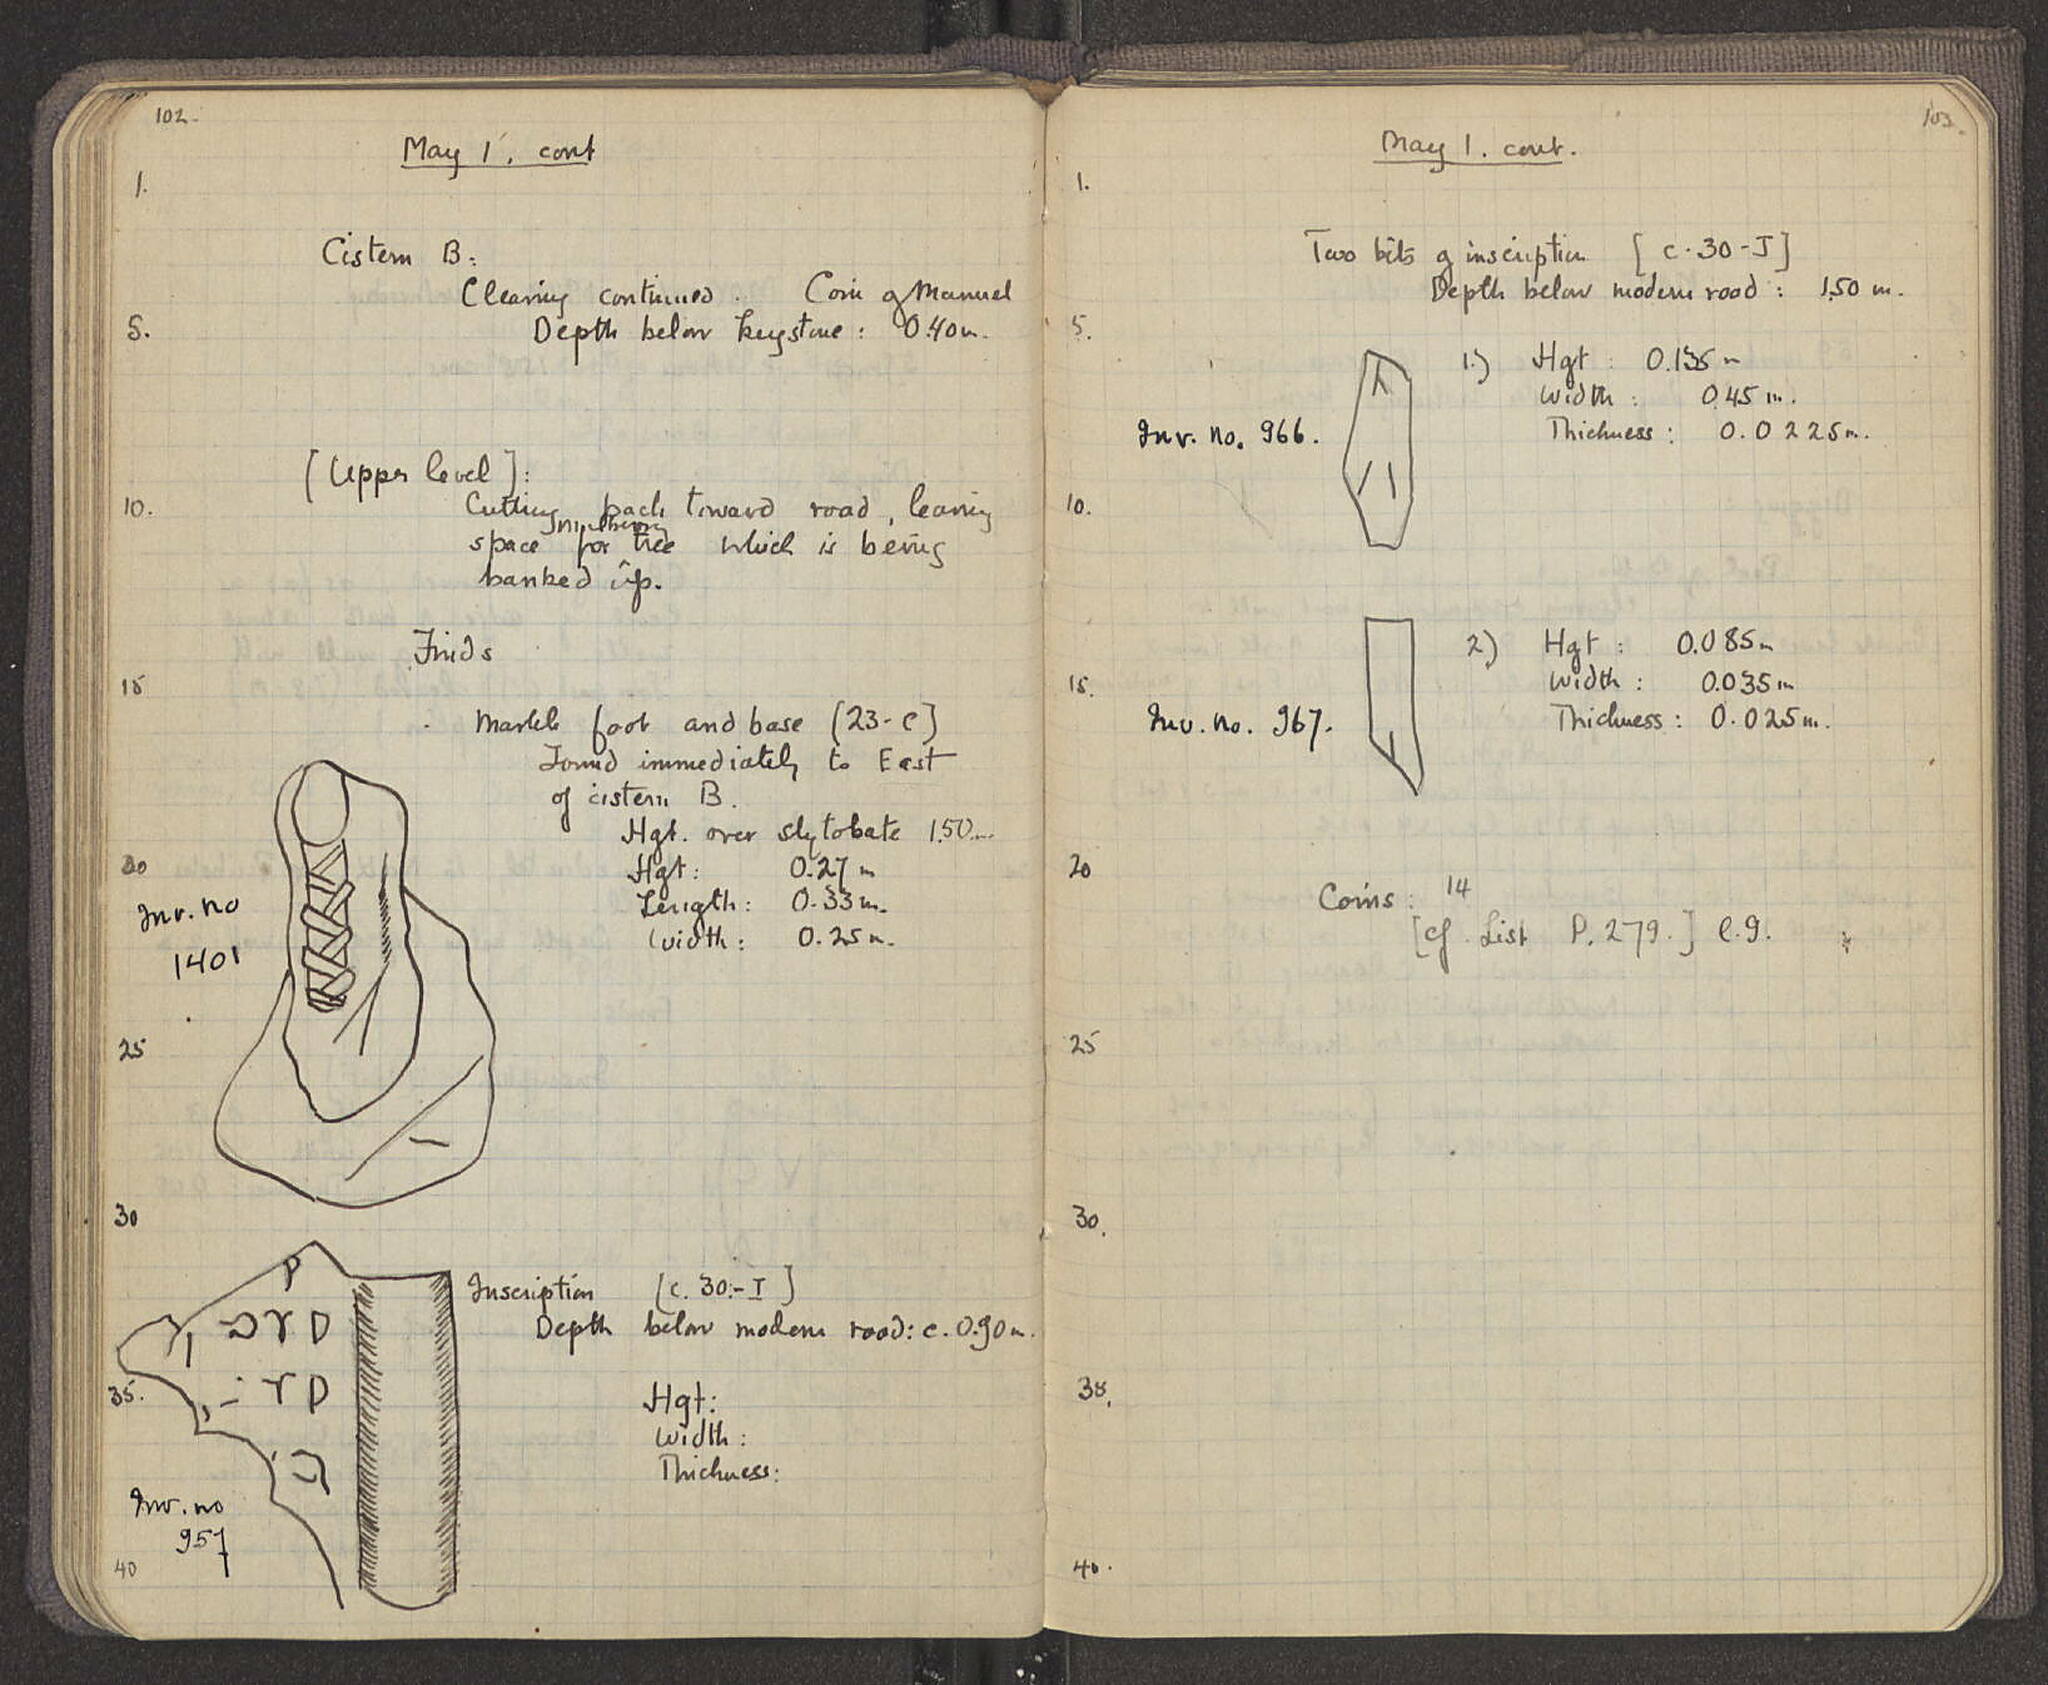 102.
May 1. cont
1.
Cistern B:
Clearing continued. Coin of Manuel
5. Depth below keystone: 0.40m.
[Upper level]:
10. Cutting back toward road, leaving
mulberry
space for tree which is being
banked up.
Finds
15
Marble foot and base [23-C]
Found immediately to East
of cistern B.
Hgt. over stytobate 1.50m
20 Hgt: 0.27 m
Length: 0.33 m.
Width: 0.25 m.
Inv. no
1401
25
30
P
Inscription [c. 30.-I]
Depth below modern road: c. 0.90 m.
35.
Hgt:
Width:
Thickness:
Inv. no
957
40
103.
May 1. cont.
1.
Two bits of inscription [c. 30-J]
Depth below modern road: 1.50 m.
5.
1.) Hgt: 0.135 m
Width: 0.45 m.
Inv. no. 966. Thickness: 0.0225 m.
10.
2) Hgt: 0.085 m
15. Width: 0.035 m
Inv. no. 967. Thickness: 0.025 m.
20
Coins: 14
[cf. List P. 279.] E.g.
25
30.
35.
40.